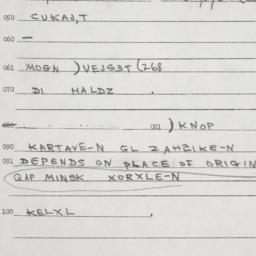 050 CUKAJ,T
060 —
061 MOGN )VEJS3T (268
070 DI HALDZ .
080 081 ) KNOP
090 KARTAVE-N GL ZAHZIKE-N
091 DEPENDS ON PLACE OF ORIGIN
QAP MINSK XORXLE-N
100 KELXL .